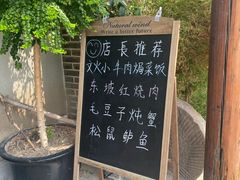 Natural wind
Write a better future
店長推荐
文火小牛肉焗菜饭
东坡红烧肉
毛豆子炖蟹
松鼠鲈鱼